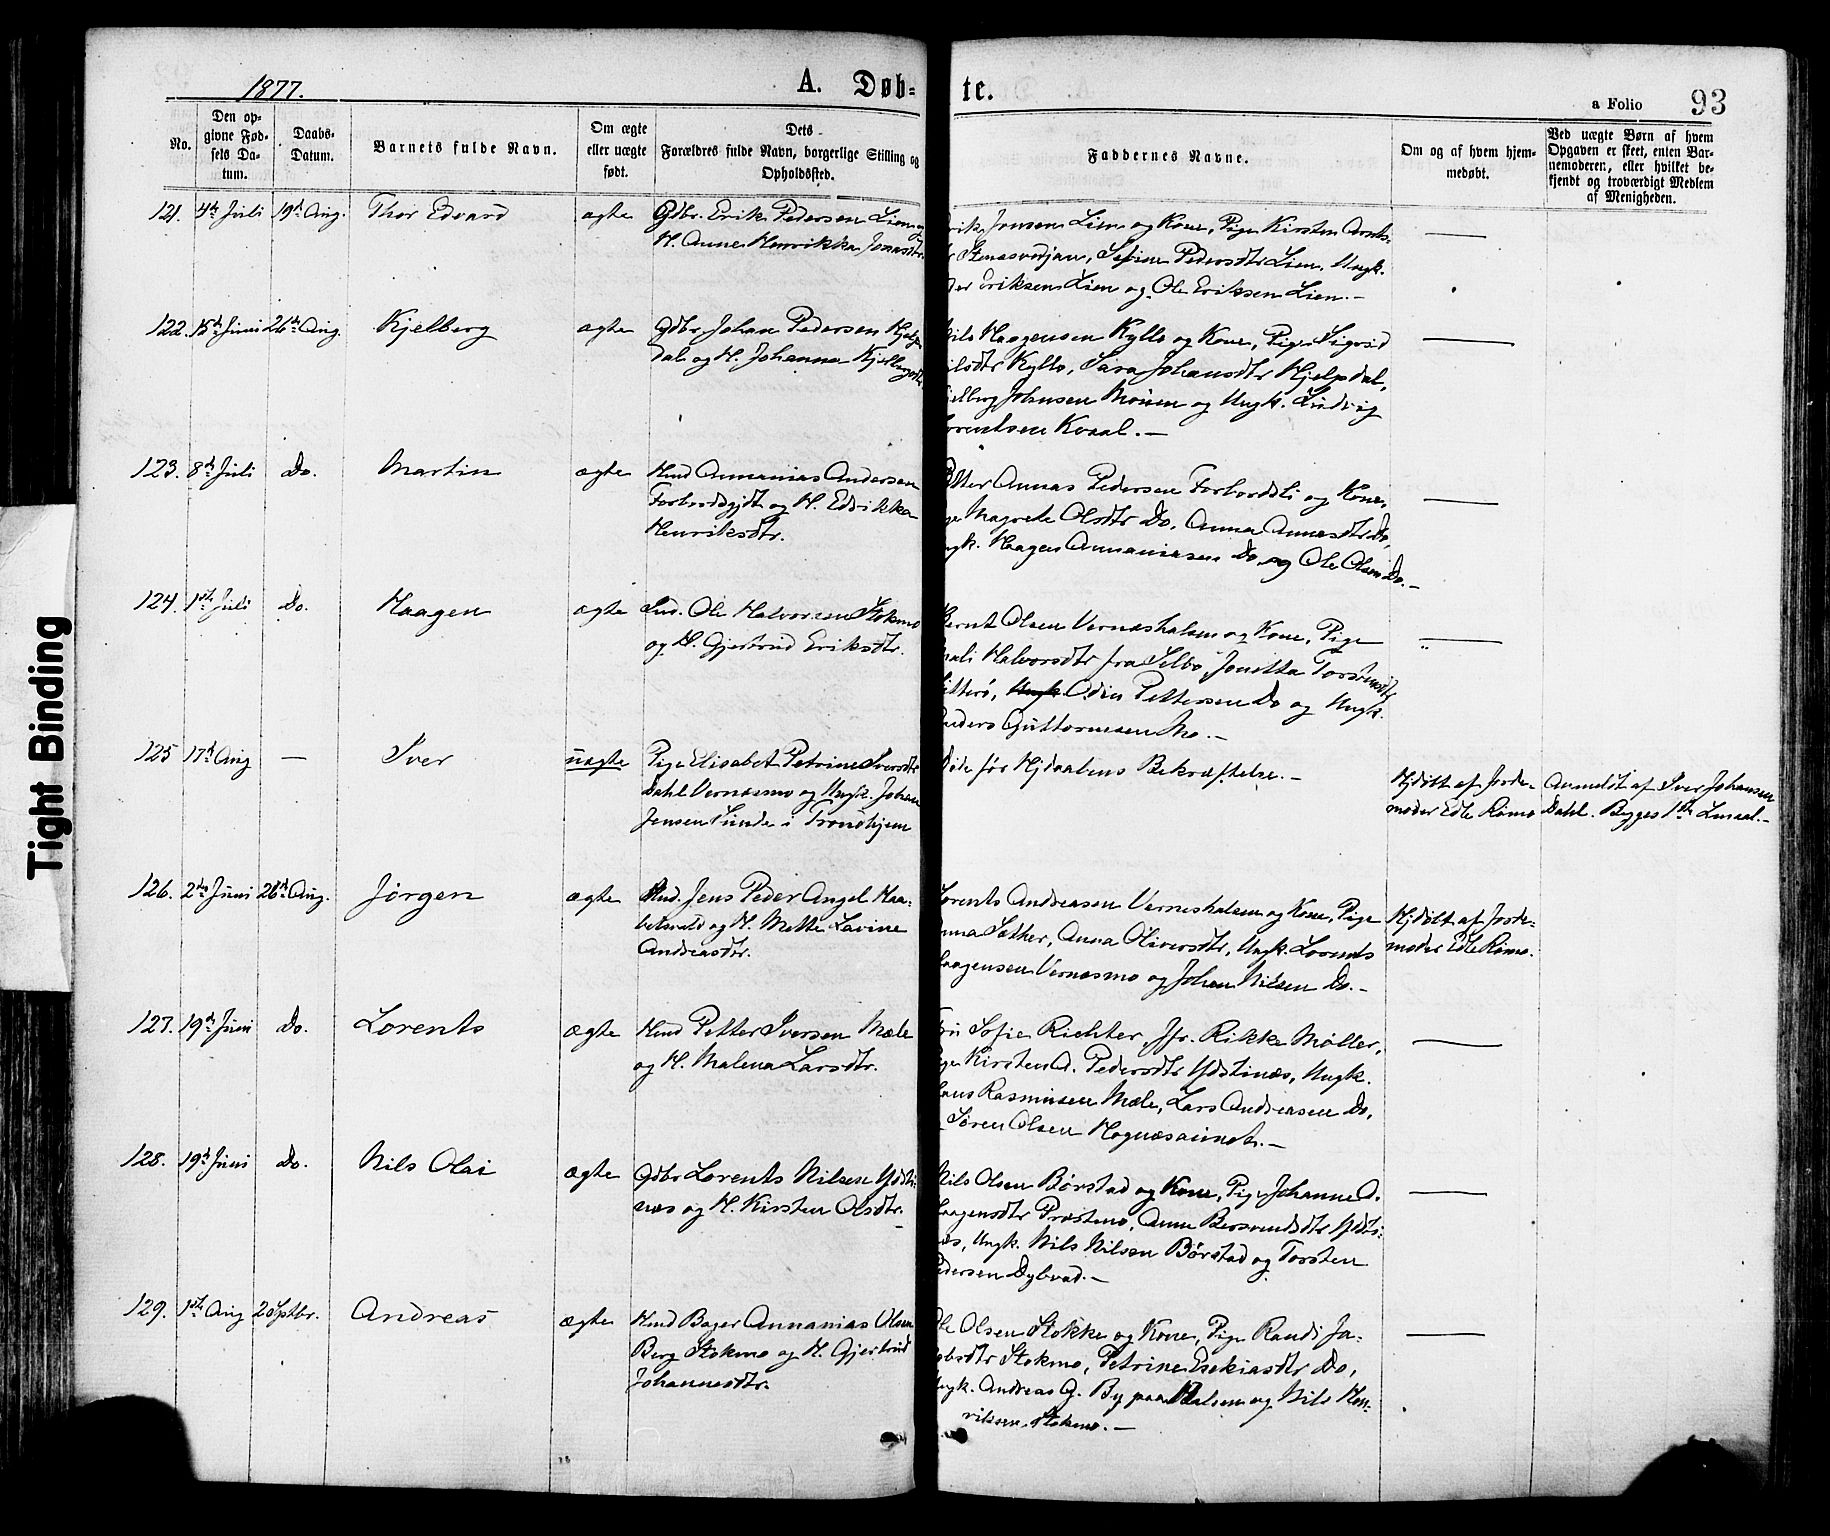 1877.
A. Døb-
te.
a Folio 93
No.
Den op-
givne Fød-
sels Da-
tum.
Daabs-
Datum.
Barnets fulde Navn.
Om ægte
eller uægte
født.
Dets
Forældres fulde Navn, borgerlige Stilling og
Opholdssted.
Faddernes Navne.
Om og af hvem hjem-
medøbt.
Ved uægte Børn af hvem
Opgaven er skeet, enten Bar-
nemoderen, eller hvilket be-
kjendt og troværdigt Medlem
af Menigheden.
121. 4de Juli 19de Aug. Thor Edvard ægte Gdbr. Erik Pedersen Lien og
H. Anne Henrikka Jonasdtr.
Jonsen Lien og Kone, Pige Kirsten
Pedersdtr Lien, Ungk.
Eriksen Lien og Ole Eriksen Lien.—
122. 15de Juni 26de Aug. Kjelberg ægte Gdbr. Johan Pedersen Hjelp-
dal og H. Johanna Kjelbergdtr
Haagensen Kyllo og Kone, Pige Sigrid
Kyllo, Sara Johansdtr Hjelpdal,
Johnsen Moien og Ungk. Ludvig
Kvaal.—
123. 8de Juli Do. Martin ægte Hmd Annanias Andersen
og H. Edrikka
Henriksdtr.
Annas Pedersen Forbordsli og Kone,
Magrete Olsdtr Do, Anna Annasdtr Do,
Haagen Annaniasen Do og Ole Olsen Do.—
124. 1ste Juli Do. Haagen ægte Ind. Ole Halvorsen Stokmo
og H. Gjertrud Eriksdtr.
Olsen Vernæshalsen og Kone, Pige
Halvorsdtr fra Selbo, Jonetta
Odin Pettersen Do og Ungk.
Guttormsen Mo.—
125 17de Aug — Iver uægte Pige Elisabet Petrine Iversdtr
Dahl Vernæsmo og Ungk. Johan
Jensen Sunde i Trondhjem
før Hjdaabens Bekræftelse.—
Hjdøbt af Jorde-
moder Edle Rømo
Anmeldt af Iver Johansen
Dahl. Bygges 1ste
126. 2den Juni 26de Aug. Jørgen ægte Hmd. Jens Peder Angel Haa-
og H. Mette Lavine
Andreasdtr.
Andreasen Verneshalsen og Kone, Pige
Sæther, Anna Oliversdtr, Ungk. Lorents
Vernæsmo og Johan Nilsen Do.—
Hjdøbt af Jorde-
moder Edle Rømo.
127. 19de Juni Do. Lorents ægte Hmd Petter Iversen Mæle
og H. Malena Larsdtr.
Sofie Richter, Jfr. Rikke Møller,
Kirsten A. Pedersdtr Ydstinæs, Ungk.
Rasmusen Mæle, Lars Andreasen Do,
Søren Olsen
128. 19de Juni Do. Nils Olai ægte Gdbr Lorents Nilsen Ydsti-
næs og H. Kirsten Olsdtr.
Nils Olsen Børstad og Kone, Pige Johanne O.
Præstmo, Anne Bersvendsdtr Ydsti-
Ungk. Nils Nilsen Børstad og Torsten
Pedersen Dybvad.—
129. 1ste Aug 2d Septbr. Andreas ægte Hmd Bager Annanias Olsen
Berg Stokmo og H. Gjertrud
Johannesdtr.
Olsen Stokke og Kone, Pige Randi Ja-
Stokmo, Petrine Esekiasdtr Do,
Andreas G. By paa Halsen og Nils Hen-
riksen Stokmo.—
Tight Binding